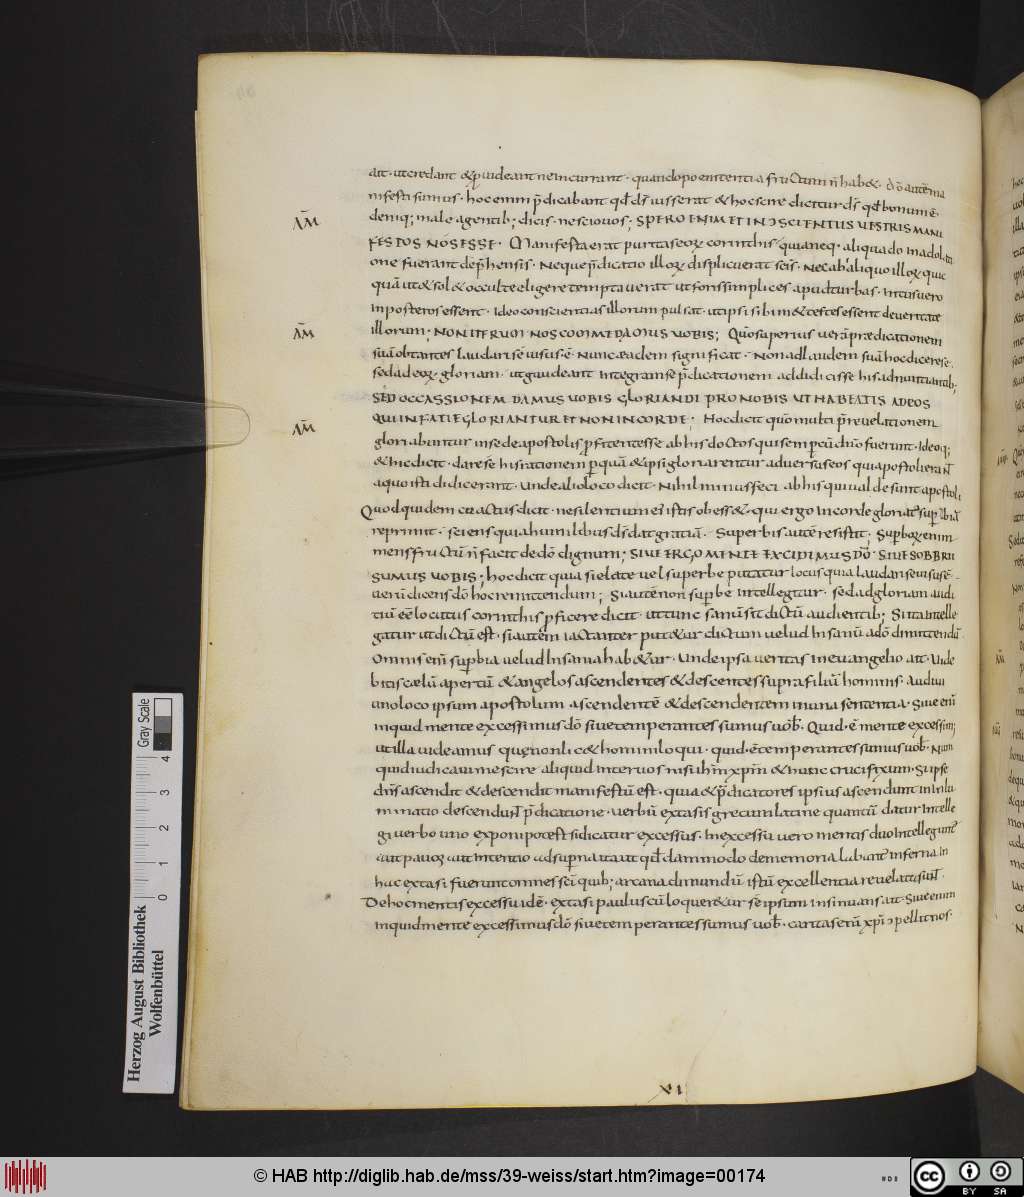 ait· ut credant &p̄uideant ne incurrant· quando poenitentia fructum n̄ hab&· dō autē ma
nifesti sumus· hoc enim p̄dicabant qd̄ ds̄ iusserat & hoc scire dicitur ds̄ qd̄ bonum ē·
deniq; male agentib; dicit· nescio uos; SPERO ENIM ET IN ↄSCIENTIIS UESTRIS MANI
ĀM
FESTOS NOS ESSE· Manifesta erat puritas eoꝝ corinthiis quia neq· aliquando in adolati
one fuerant dep̄hensis· Neque p̄dicatio illoꝝ displicuerat sc̄is· Nec ab aliquo illoꝝ quic
quā ut & sol& occulte eligere temptauerat ut foris simplices apud turbas· intus uero
inposteros essent· Ideo conscientias illorum pulsat· ut ipsi sibi in& testes essent de ueritate
ĀM
illorum· NON ITERUM NOS COMMEDAMUS UOBIS; Quō superius uerā prædicationem
suā obtantes laudari sē uisus ē· Nunc eadem significat· Non ad laudem suā hoc dicere se·
sed ad eoꝝ gloriam· ut gaudeant integram se p̄dicationem addidicisse his admirantib;
SED OCCASSIONEM DAMUS UOBIS GLORIANDI PRO NOBIS UT HABEATIS AD EOS
ĀM
QUI IN FATIE GLORIANTUR ET NON IN CORDE; Hoc dicit quō multi p̄ reuelationem
gloriabuntur in se de apostolis p̄fitentes se ab his doctos qui semp̄ cū dn̄o fuerunt· Ideoq;
& hic dicit· dare se his rationem p̄ quā & ipsi gloriarentur aduersus eos qui apostoli erant
a quo isti didicerant· Unde alio loco dicit· Nihil minus feci ab his qui ualde sunt apostoli
Quod quidem coactus dicit· ne silentium ei istis obess&· qui ergo in corde gloriat̄ sup̄bia
reprimit· sciens quia humilibus ds̄ dat gratiā· Superbis autē resistit; Sup̄boꝝ enim
mens fructū n̄ facit de dō dignum; SIUE ERGO MENTE EXCIDIMUS DŌ· SIUE SOBBRII
SUMUS UOBIS; hoc dicit quia si elate uel superbe putatur locus quia laudari se uisus ē·
uerū dicens dō hoc remittendum; Si autē non sup̄be intellegitur· sed ad gloriam audi
tiū eē locutus corinthis p̄ficere dicit· ut tunc sanū sit dictū audientib; Si ita intelle
gatur ut dictū est· si autem iactanter put&ur dictum uelud insanū a dō dimittendū·
Omnis enī sup̄bia uelud insania hab&ur· Unde ipsa ueritas in euangelio ait· Uide
bitis cælū apertū & angelos ascendentes & descentes supra filiū hominis· Audiui
uno loco ipsum apostolum ascendentē & descendentem in una sententia· Siue enī
inquid mente excessimus dō siue temperantes sumus uob̄· Quid ē mente excessim;
ut illa uideamus quę non lic& homini loqui· quid ē temperantes sumus uob̄· Num
quid iudicaui me scire aliquid inter uos nisi ih̄m xp̄m & hunc crucifixum· Si ipse
dn̄s ascendit & descendit manifestū est· quia & p̄dicatores ipsius ascendunt in inlu
minatio descendunt p̄dicatione· uerbū extasis grecum latine quantū datur intelle
gi uerbo uno exponi potest si dicatur excessus· In excessu uero mentis duo intelleguntˀ
aut pauor aut intentio ad sup̄na ita ut qd̄ dam modo de memoria labant inferna in
hac extasi fuerunt omnes sc̄i quib; arcana di mundū istū excellentia reuelata sunt·
De hoc mentis excessu idē· extasi paulus cū loquer&ur se ipsum insinuans ait· Siue enim
inquid mente excessimus dō siue temperantes sumus uob̄· caritas enī xp̄i ↄpellit nos·
XI
Gray Scale
0 1 2 3 4
Herzog August Bibliothek
Wolfenbüttel
© HAB http://diglib.hab.de/mss/39-weiss/start.htm?image=00174
cc BY SA